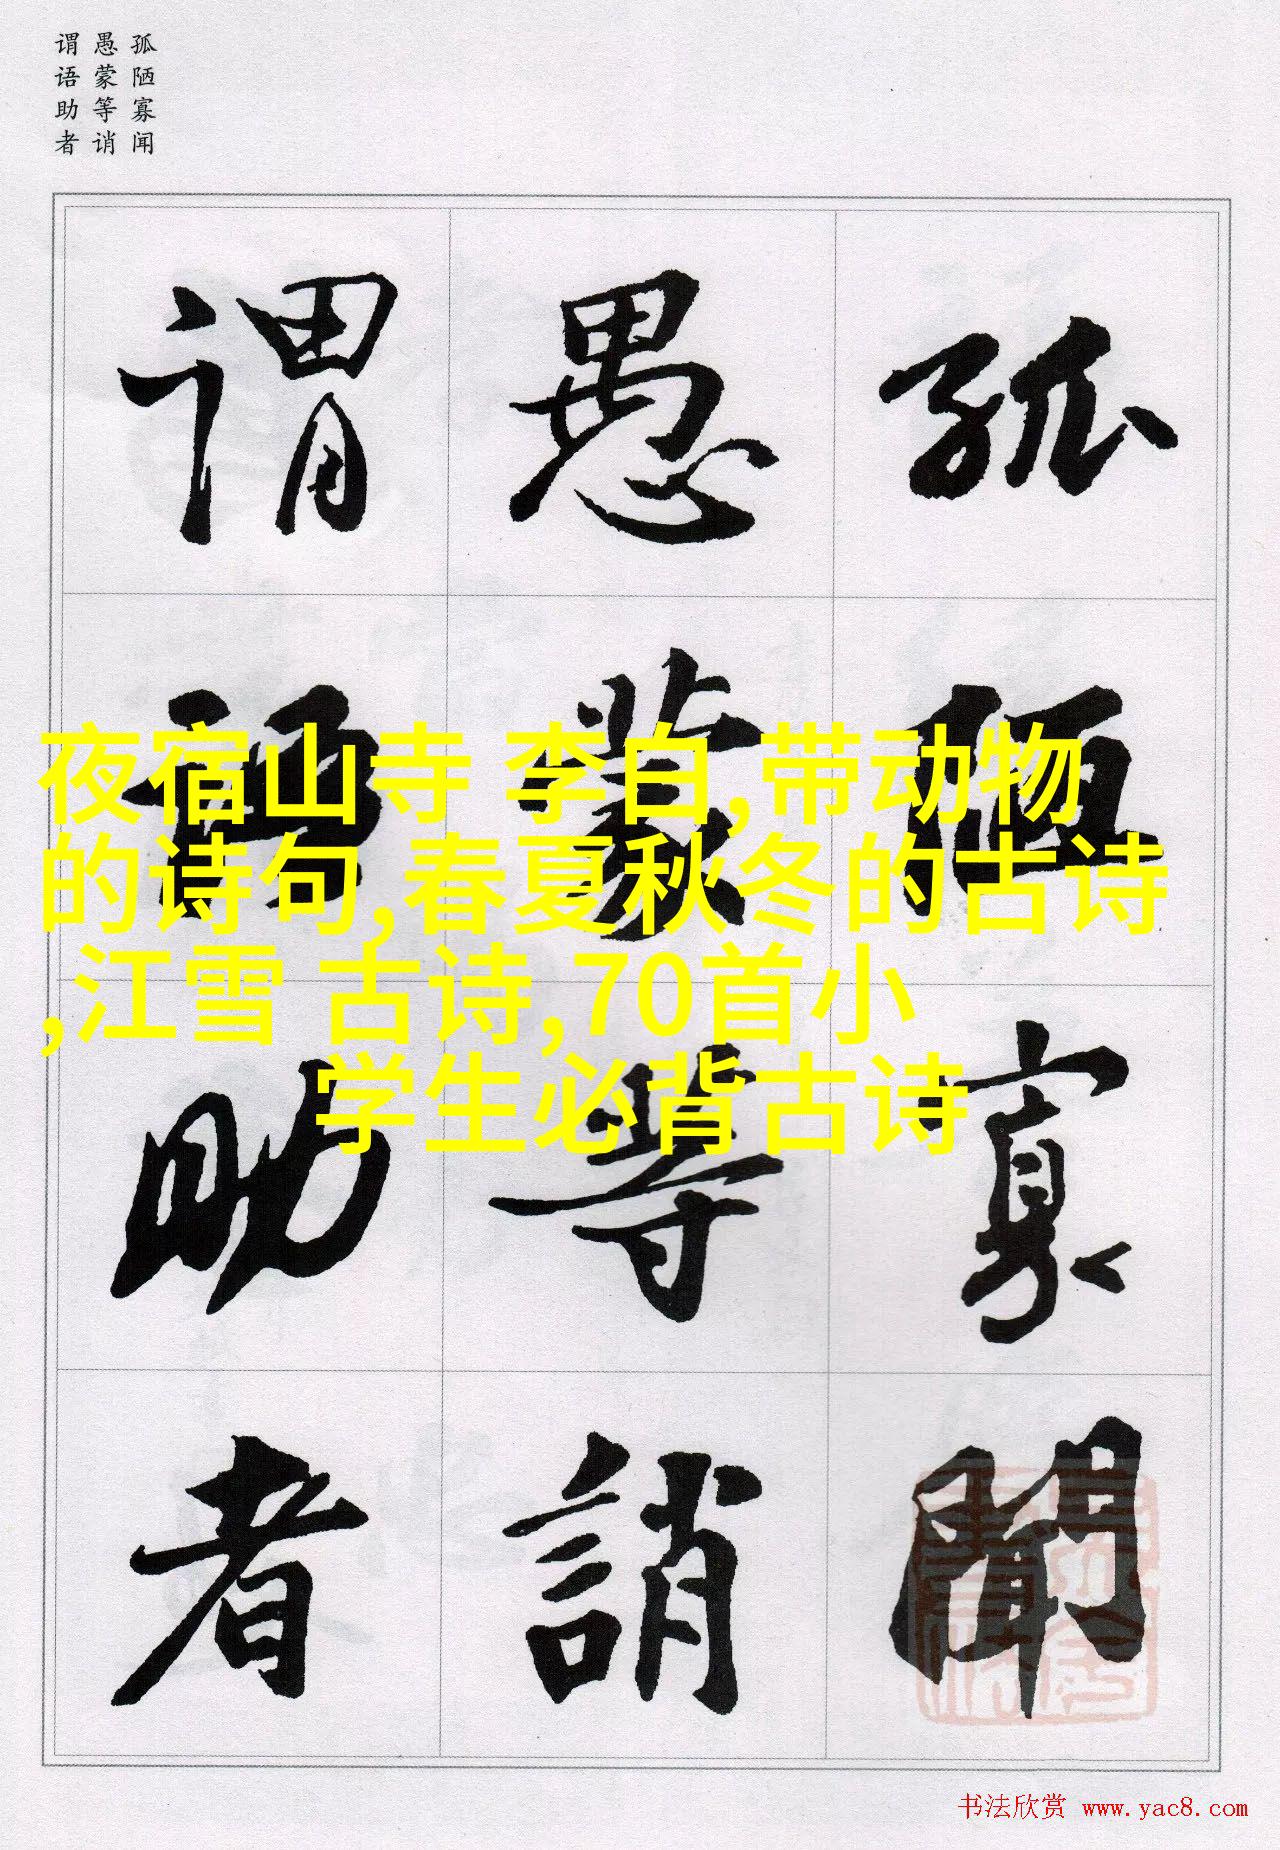 孤陋寡闻
愚蒙等诮
谓语助者
孤陋寡聞
愚蒙等誚
謂語助者
夜宿山寺 李白,带动物
的诗句,春夏秋冬的古诗
,江雪 古诗,70首小
学生必背古诗
书法欣赏 www.yac8.com